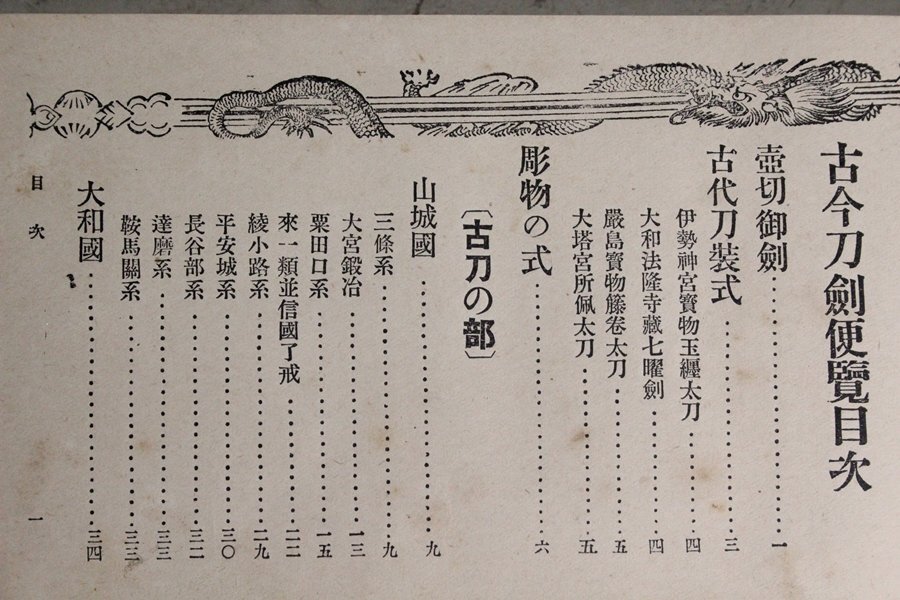 古今刀劍便覽目次
壺切御劍……………………一
古代刀裝式……………………三
伊勢神宮寶物玉纒太刀…………四
大和法隆寺藏七曜劍……………四
嚴島寶物籐卷太刀………………五
大塔宮所佩太刀…………………五
彫物の式……………………六
〔古刀の部〕
山城國……………………九
三條系……………………九
大宮鍛冶……………………一三
粟田口系……………………一五
來一類並信國了戒……………二二
綾小路系……………………二九
平安城系……………………三〇
長谷部系……………………三二
達磨系……………………三三
鞍馬關系……………………三三
大和國……………………三四
目次
一